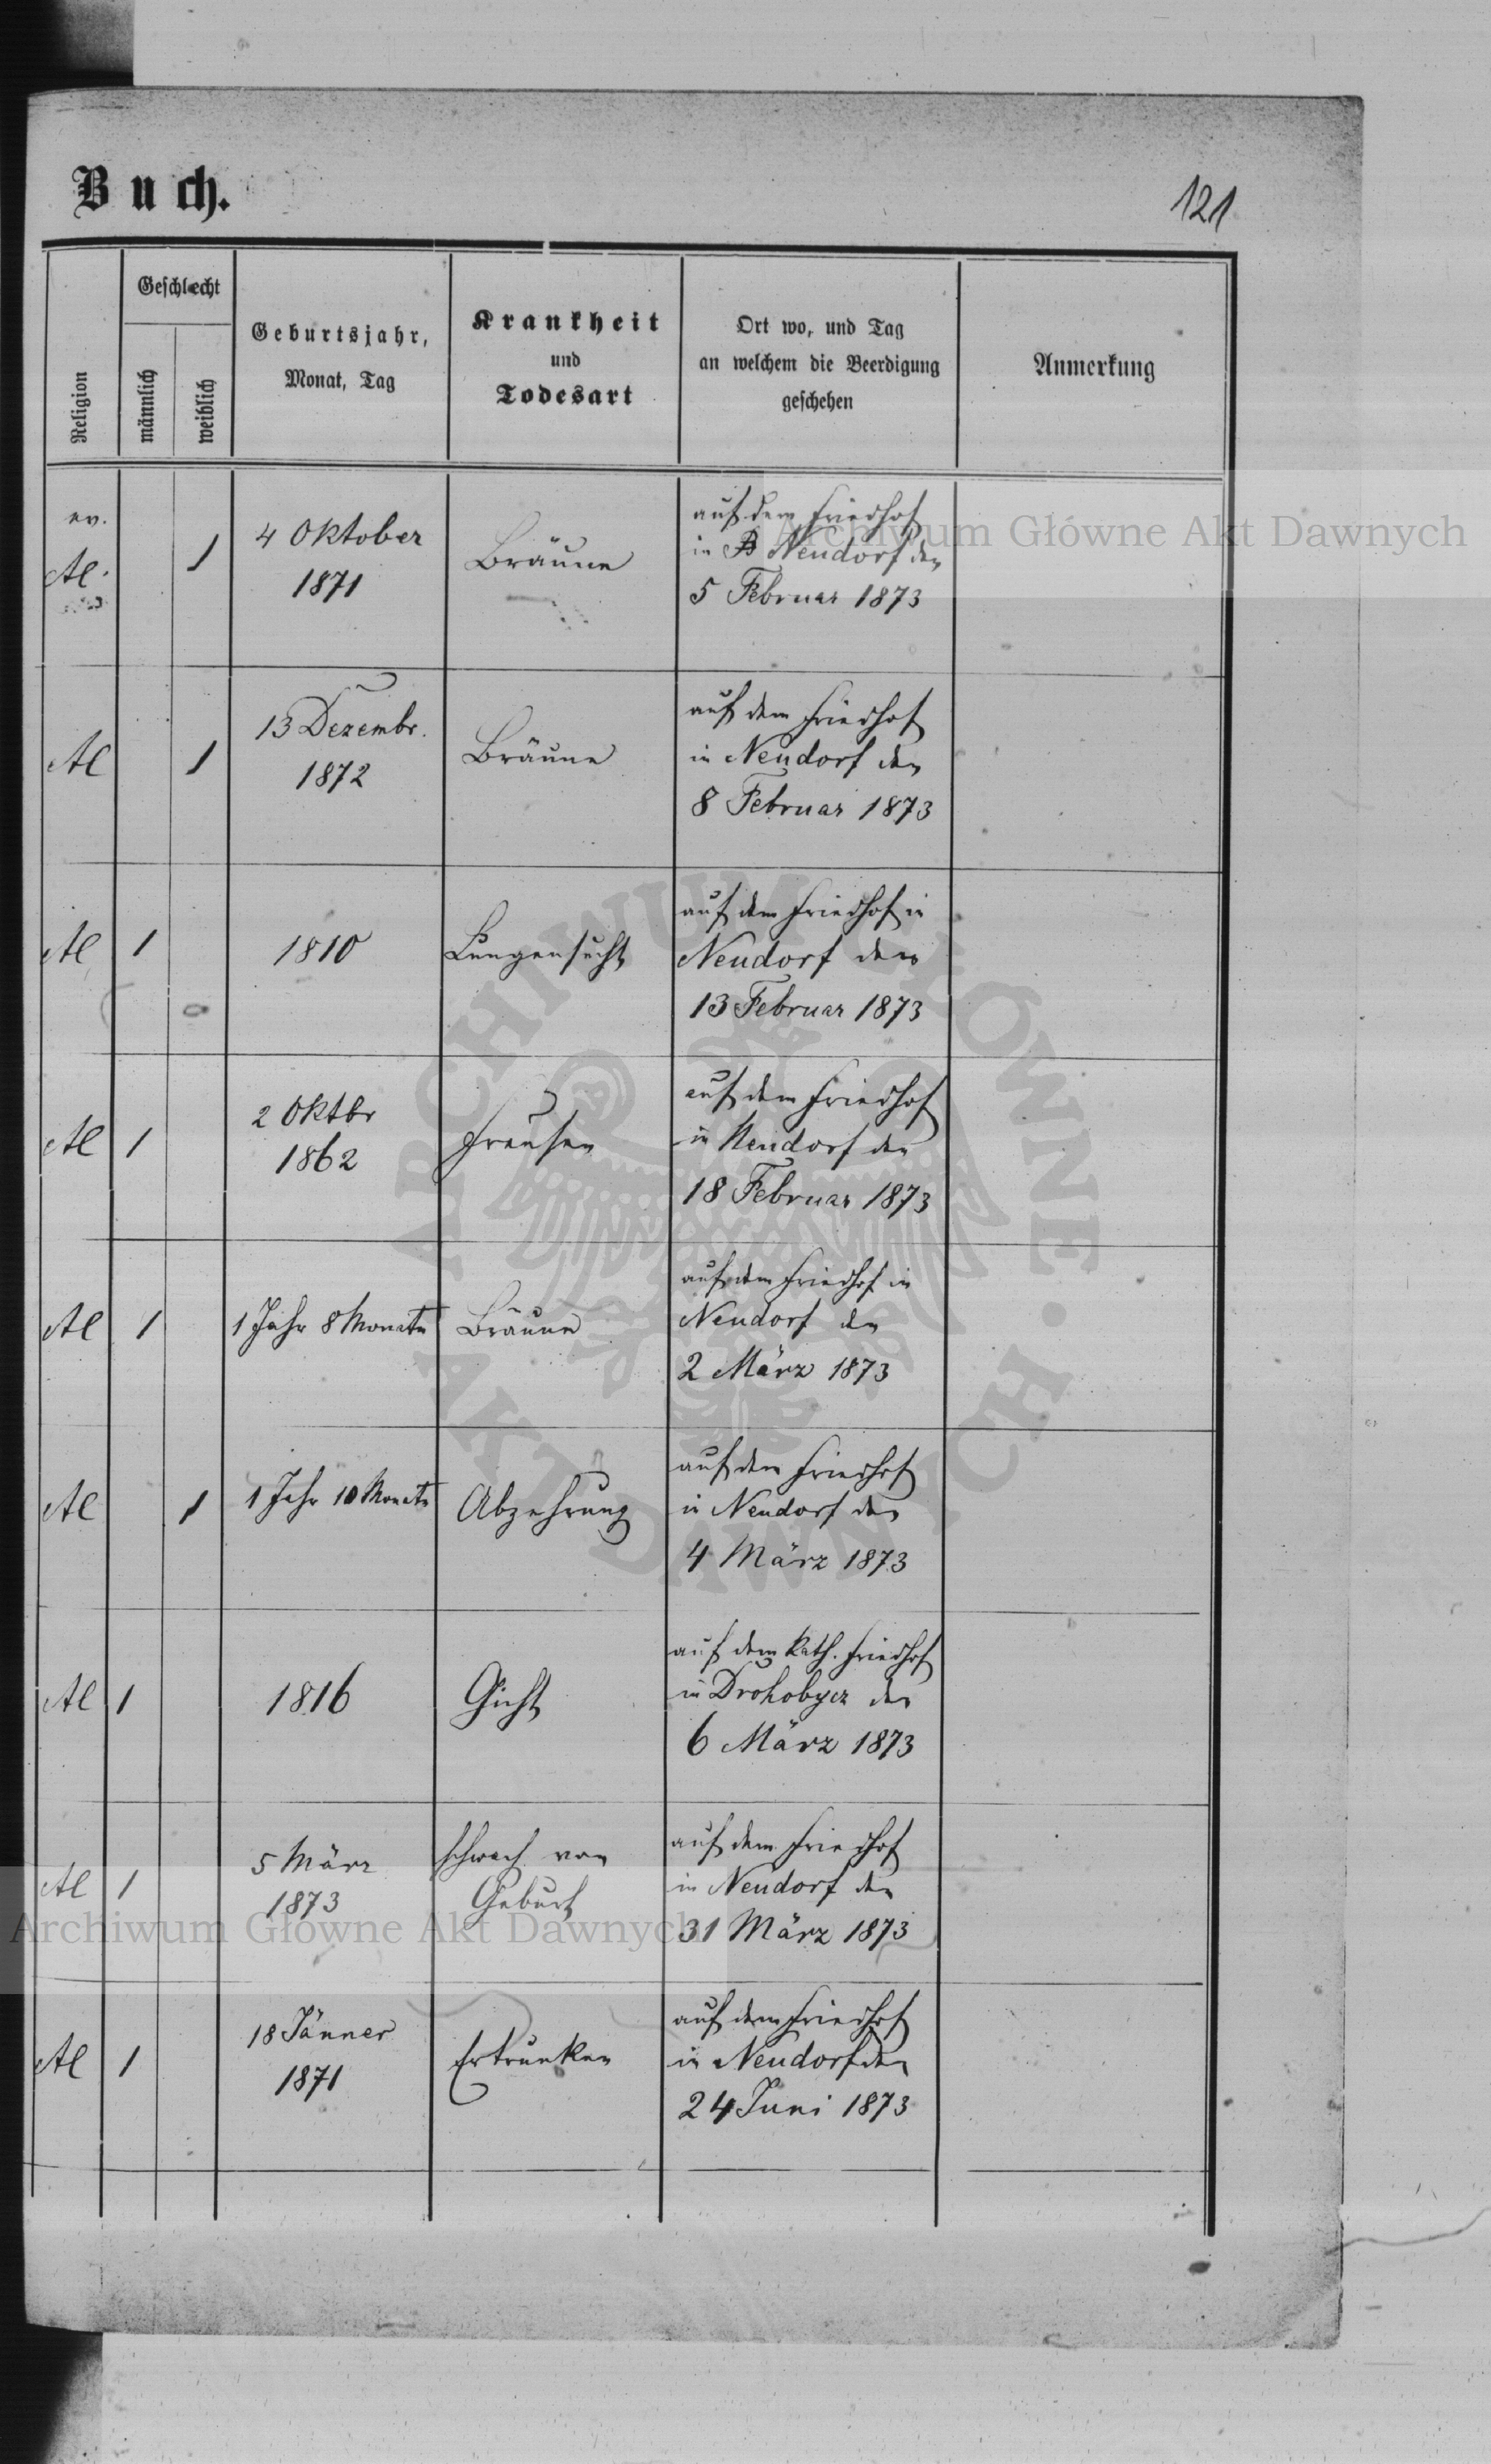 Buch.
121
Religion
Geschlecht
männlich
weiblich
Geburtsjahr,
Monat, Tag
Krankheit
und
Todesart
Ort wo, und Tag
an welchem die Beerdigung
geschehen
Anmerkung
ev.
AC.
1
4 Oktober
1871
Bräune
auf dem Friedhof
in Neudorf den
5 Februar 1873
AC
1
13 Dezembr.
1872
Bräune
auf dem Friedhof
in Neudorf den
8 Februar 1873
AC
1
1810
Lungensucht
auf dem Friedhof in
Neudorf den
13 Februar 1873
AC
1
2 Oktbr
1862
auf dem Friedhof
in Neudorf den
18 Februar 1873
AC
1
1 Jahr 8 Monate
Bräune
auf dem Friedhof in
Neudorf den
2 März 1873
AC
1
1 Jahr 10 Monate
Abzehrung
auf dem Friedhof
in Neudorf den
4 März 1873
AC
1
1816
Gicht
auf dem Kath. Friedhof
in Drohobycz den
6 März 1873
AC
1
5 März
1873
schwach von
Geburt
auf dem Friedhof
in Neudorf den
31 März 1873
AC
1
18 Jänner
1871
Ertrunken
auf dem Friedhof
in Neudorf den
24 Juni 1873
Archiwum Główne Akt Dawnych
Archiwum Główne Akt Dawnych
ARCHIWUM GŁÓWNE AKT DAWNYCH